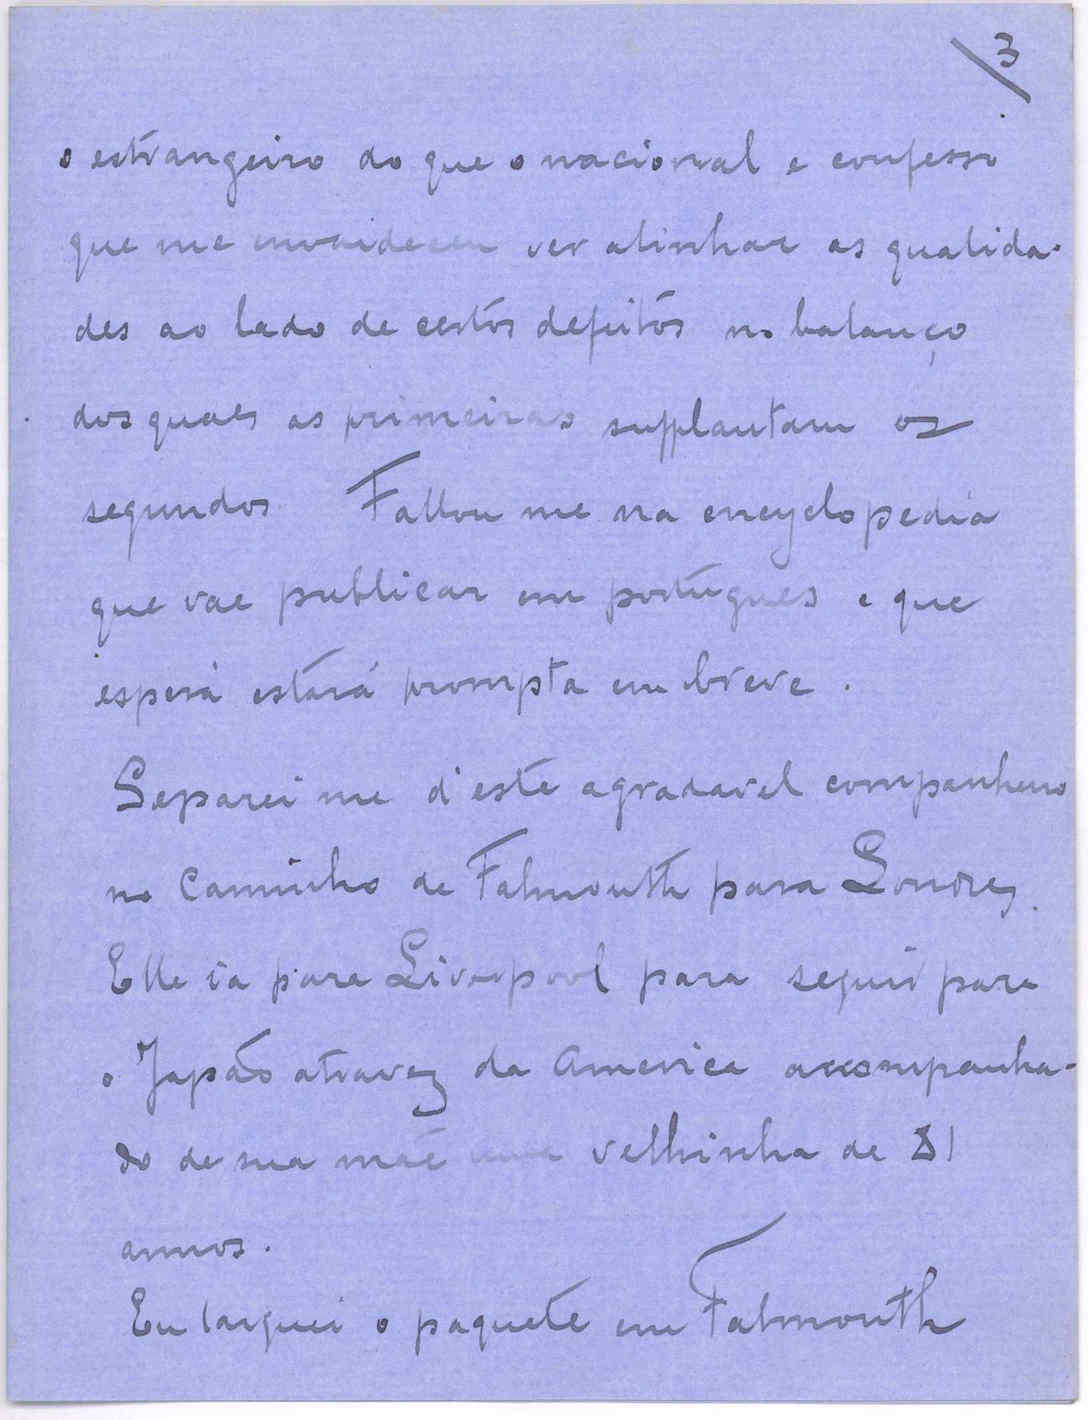 3
o estrangeiro do que o nacional e confesso
que me envaideceu ver alinhar as qualida-
des ao lado de certos defeitos no balanço
dos quaes as primeiras supplantam os
segundos. Fallou me na encyclopedia
que vae publicar em portugues e que
espera estará prompta em breve.
Separei me d'este agradavel companheiro
no caminho de Falmouth para Londres.
Elle ia para Liverpool para seguir para
o Japão atravez da America accompanha-
do de sua mãe uma velhinha de 81
annos.
Eu larguei o paquete em Falmouth